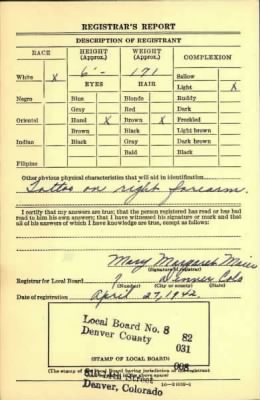 REGISTRAR'S REPORT
DESCRIPTION OF REGISTRANT
RACE HEIGHT (Approx.) WEIGHT (Approx.) COMPLEXION
6'- 191 Sallow
White X EYES HAIR Light X
Negro Blue Blonde Ruddy
Gray Red Dark
Oriental Hazel X Brown X Freckled
Brown Black Light brown
Indian Black Gray Dark brown
Bald Black
Filipino
Other obvious physical characteristics that will aid in identification
Tattoo on right forearm.
I certify that my answers are true; that the person registered has read or has had
read to him his own answers; that I have witnessed his signature or mark and that
all of his answers of which I have knowledge are true, except as follows:
Mary Margaret
(Signature of registrar)
Registrar for Local Board 7 Denver Colo
(Number) (City or county) (State)
Date of registration April 27, 1942.
Local Board No. 8 82
Denver County 031
008
(STAMP OF LOCAL BOARD)
(The stamp of the Local Board having jurisdiction of the registrant
shall be placed in the above space)
Street
Denver, Colorado